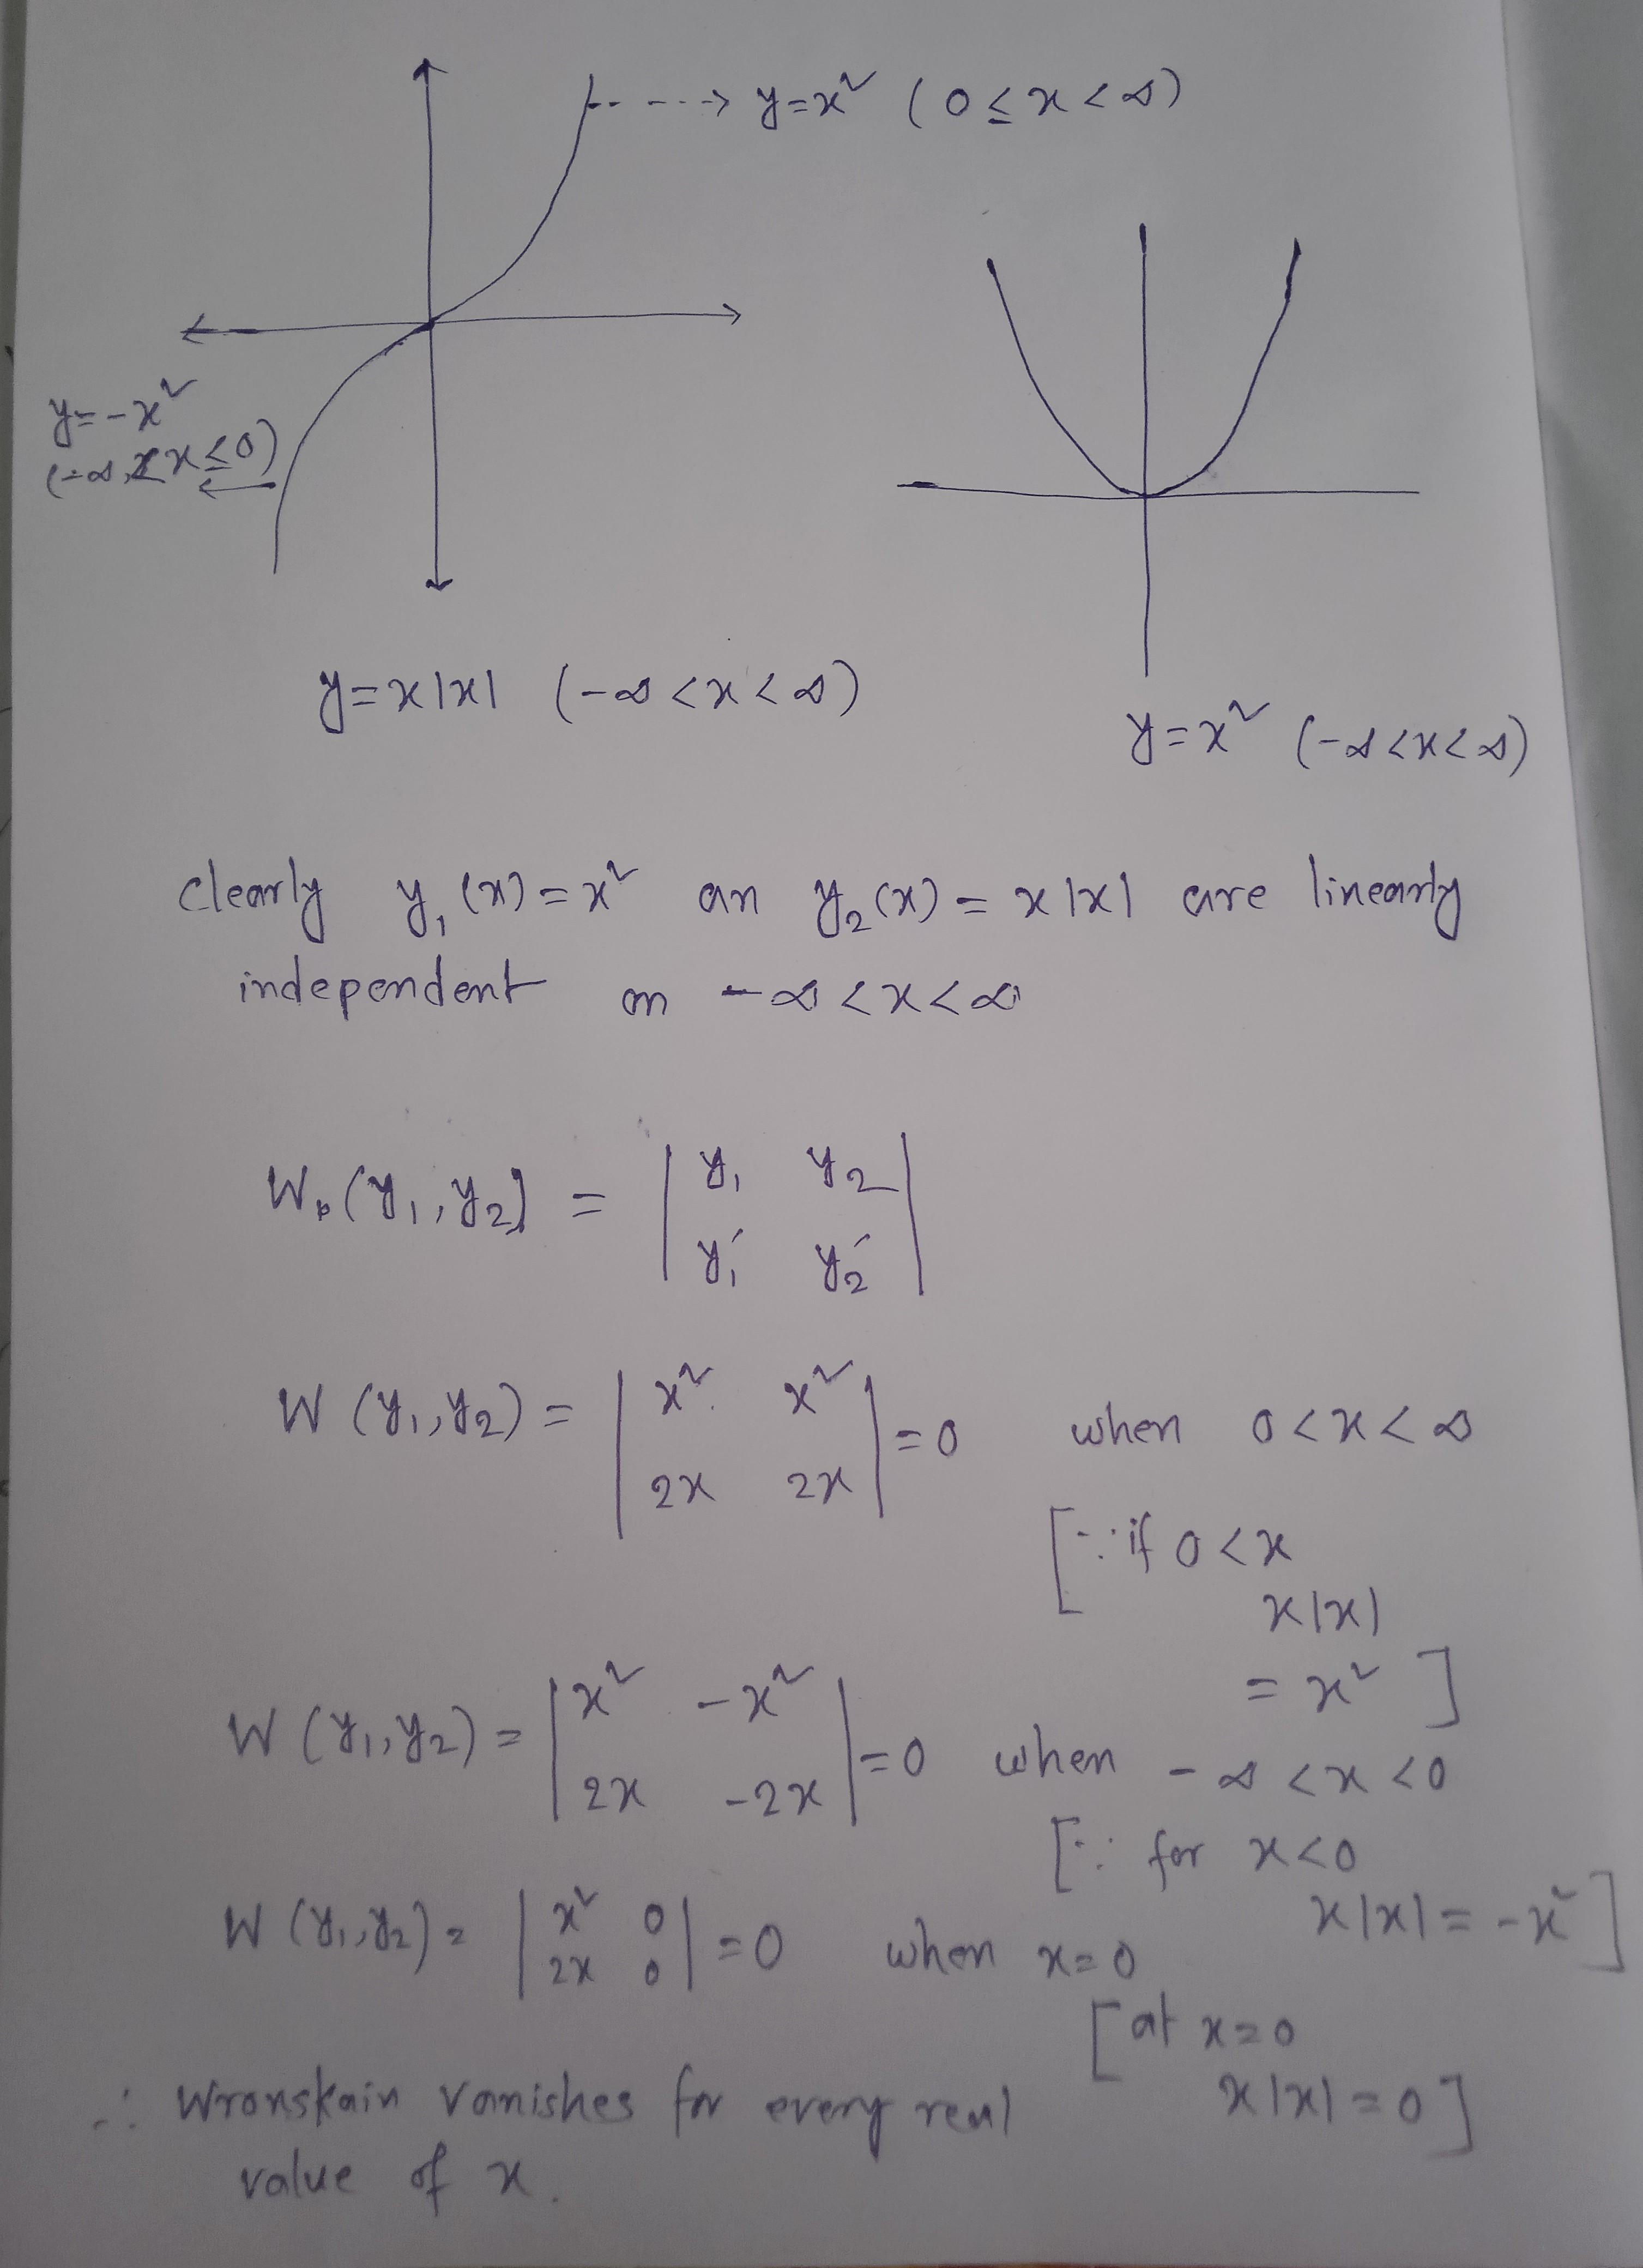 y=x² (0≤x<∞)
y=-x²
(-∞<x≤0)
y=x|x| (-∞<x<∞)
y=x² (-∞<x<∞)
Clearly y₁(x)=x² an y₂(x)=x|x| are linearly
independent on -∞<x<∞
W(y₁,y₂) = | y₁ y₂ |
| y₁′ y₂′ |
W(y₁,y₂) = | x² x² | =0 when 0<x<∞
| 2x 2x |
[∵ if 0<x
x|x|
= x² ]
W(y₁,y₂) = | x² -x² | =0 when -∞<x<0
| 2x -2x |
[∵ for x<0
x|x|=-x² ]
W(y₁,y₂)= | x² 0 | =0 when x=0
| 2x 0 |
[at x=0
x|x|=0]
∴ Wronskain vanishes for every real
value of x.